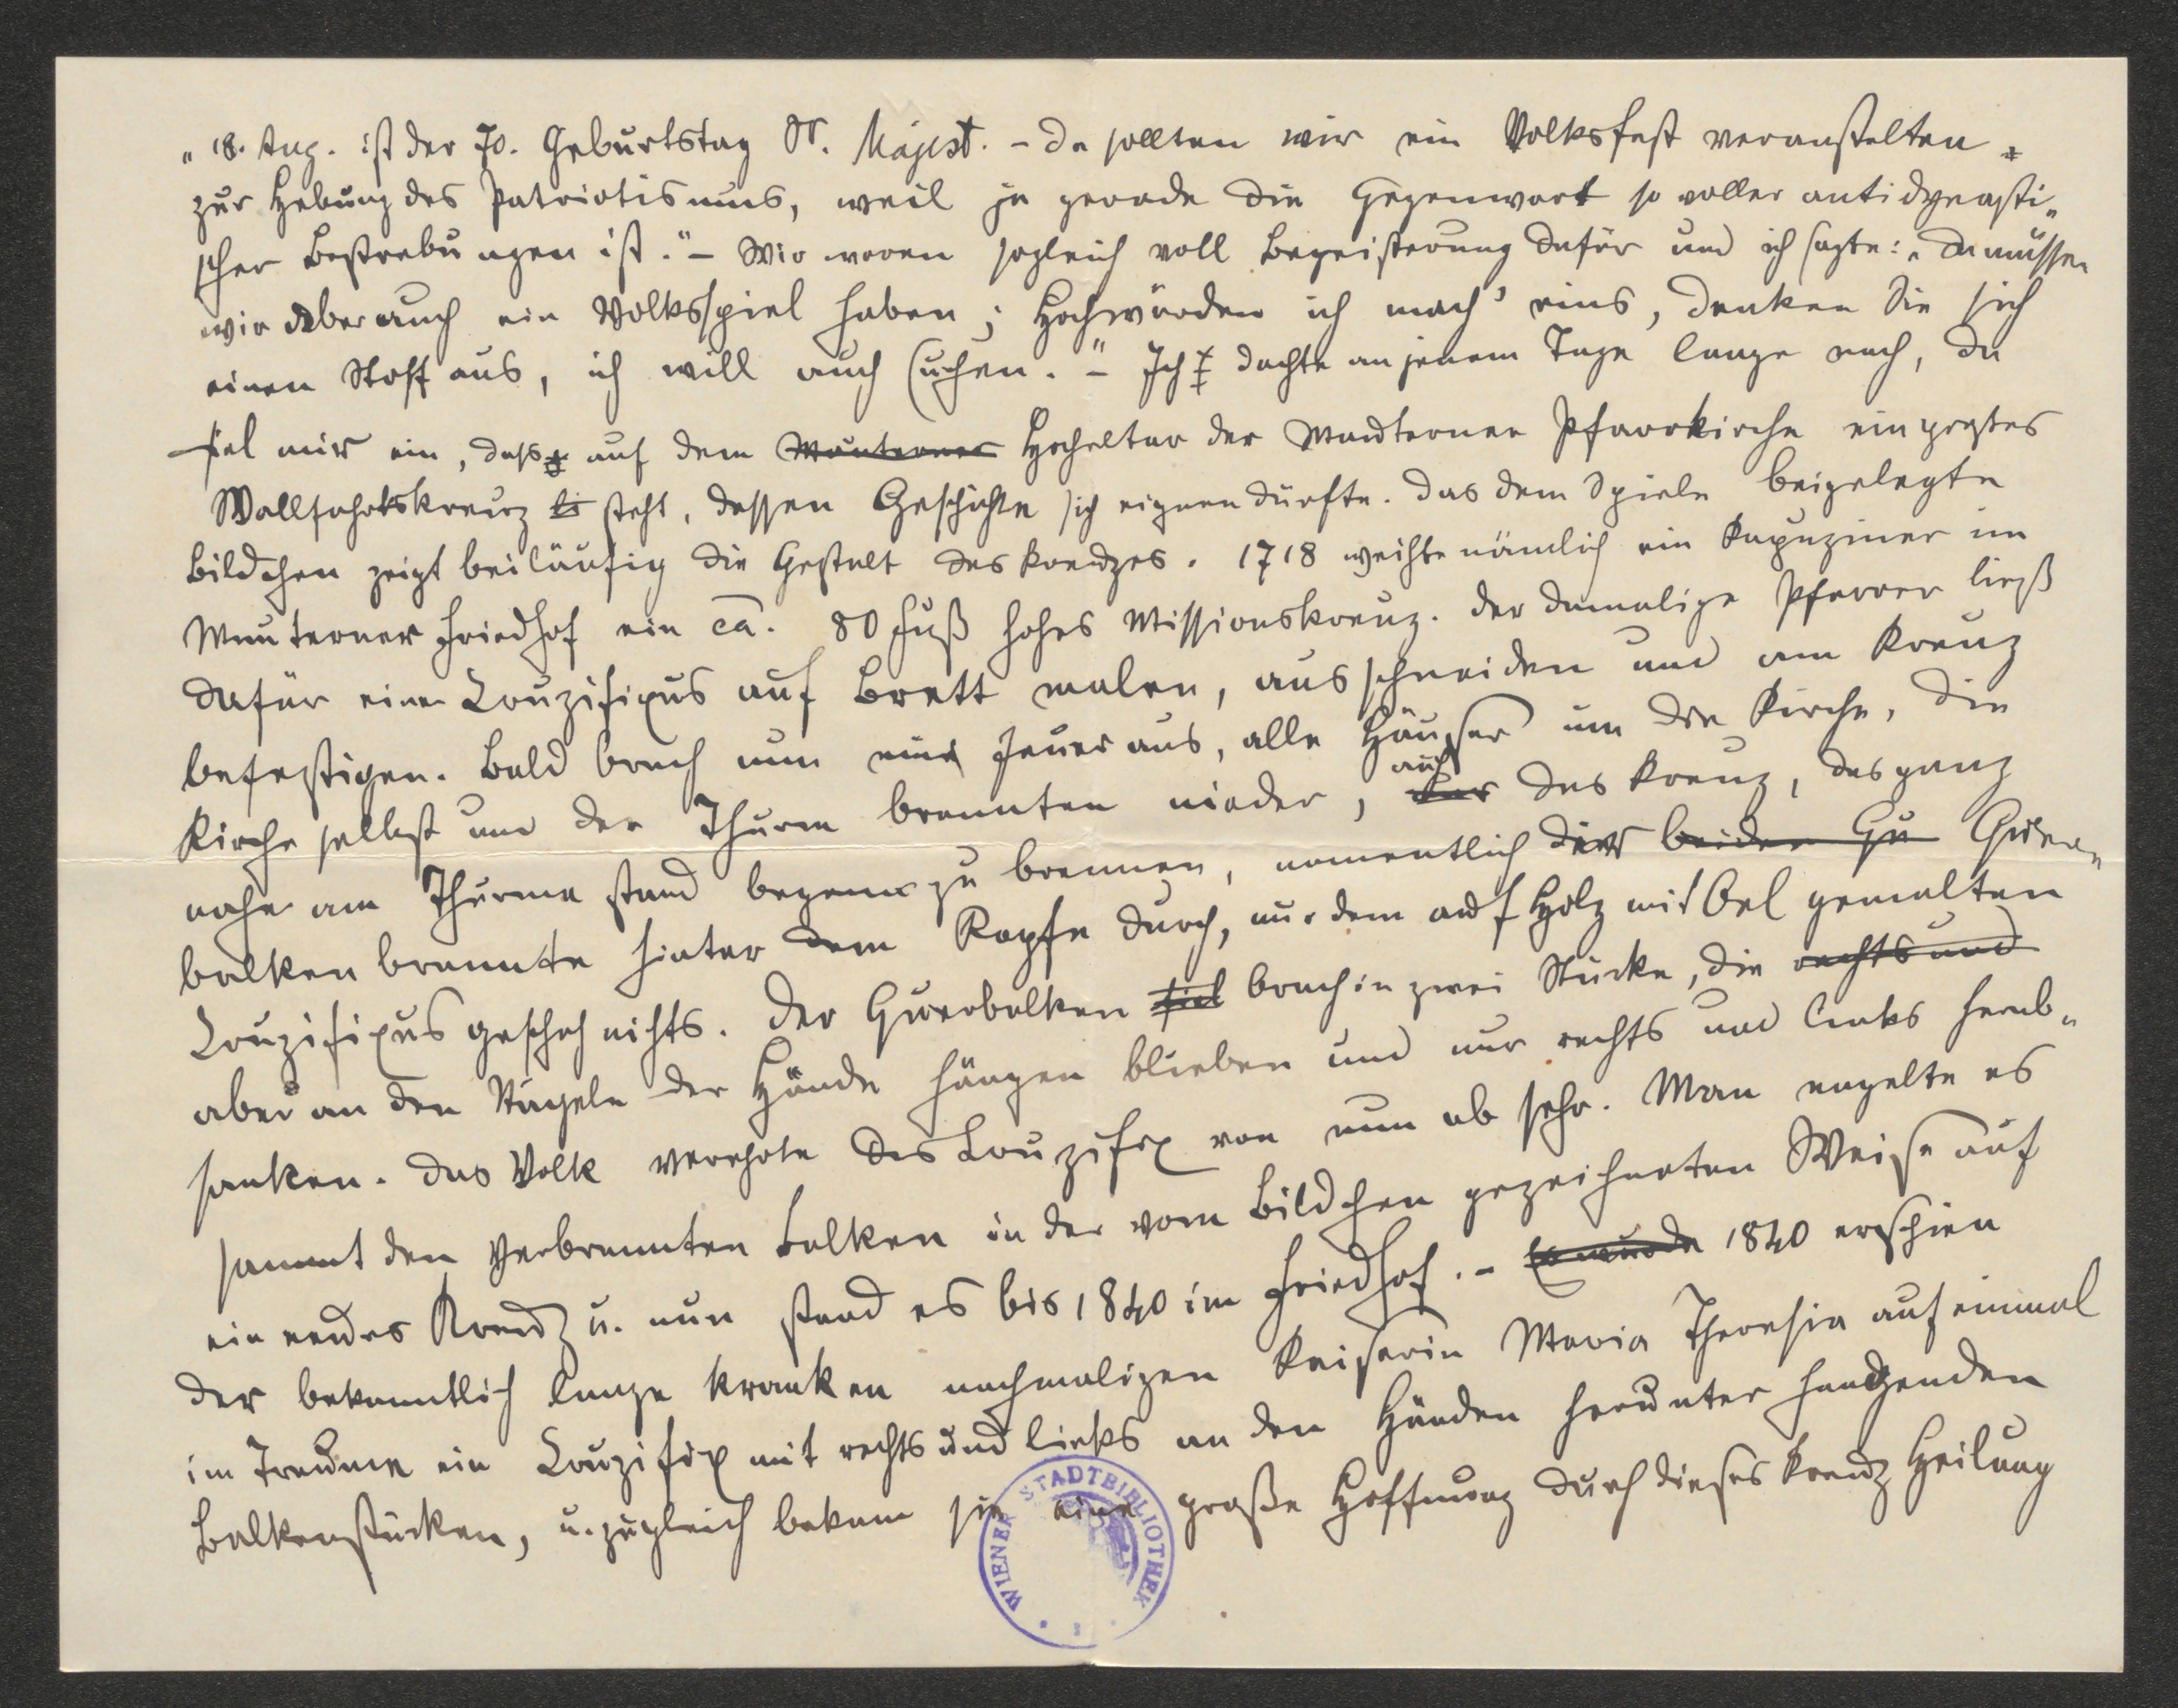 „18. Aug. ist der 70. Geburtstag Sr. Majest. – Da sollten wir ein Volksfest veranstalten
zur Hebung des Patriotismus, weil ja gerade die Gegenwart so voller antidynasti-
scher Bestrebungen ist.“ – Wir waren sogleich voll Begeisterung dafür und ich sagte: „Da müssen
wir aber auch ein Volksspiel haben; Hochwürden ich mach' eins, denken Sie sich
einen Stoff aus, ich will auch suchen.“ – Ich dachte an jenem Tage lange nach, da
fiel mir ein, daß auf dem Mauterner Hochaltar der Mauterner Pfarrkirche ein großes
Wallfahrtskreuz steht, dessen Geschichte sich eignen dürfte. Das dem Spiele beigelegte
Bildchen zeigt beiläufig die Gestalt des Kreuzes. 1718 weihte nämlich ein Kapuziner im
Mauterner Friedhof ein ca. 80 Fuß hohes Missionskreuz. Der damalige Pfarrer ließ
dafür einen Cruzifixus auf Brett malen, ausschneiden und am Kreuz
befestigen. Bald brach nun ein Feuer aus, alle Häuser um die Kirche, die
Kirche selbst und der Thurm brannten nieder, auch das Kreuz, das ganz
nahe am Thurme stand begann zu brennen, namentlich der beiden Qu Quer-
balken brannte hinter dem Kopfe durch, nur dem auf Holz mit Oel gemalten
Cruzifixus geschah nichts. Der Querbalken fiel brach in zwei Stücke, die rechts und
aber an den Nägeln der Hände hängen blieben und nur rechts und links herab-
sanken. Das Volk verehrte das Cruzifix von nun ab sehr. Man nagelte es
sammt den verbrannten Balken in der vom Bildchen gezeichneten Weise auf
ein neues Kreuz u. nun stand es bis 1840 im Friedhof. – Es wurde 1840 erschien
der bekanntlich lange kranken nachmaligen Kaiserin Maria Theresia auf einmal
im Traume ein Cruzifix mit rechts und links an den Händen herunter hangenden
Balkenstücken, u. zugleich bekam sie eine große Hoffnung durch dieses Kreuz Heilung
WIENER STADTBIBLIOTHEK